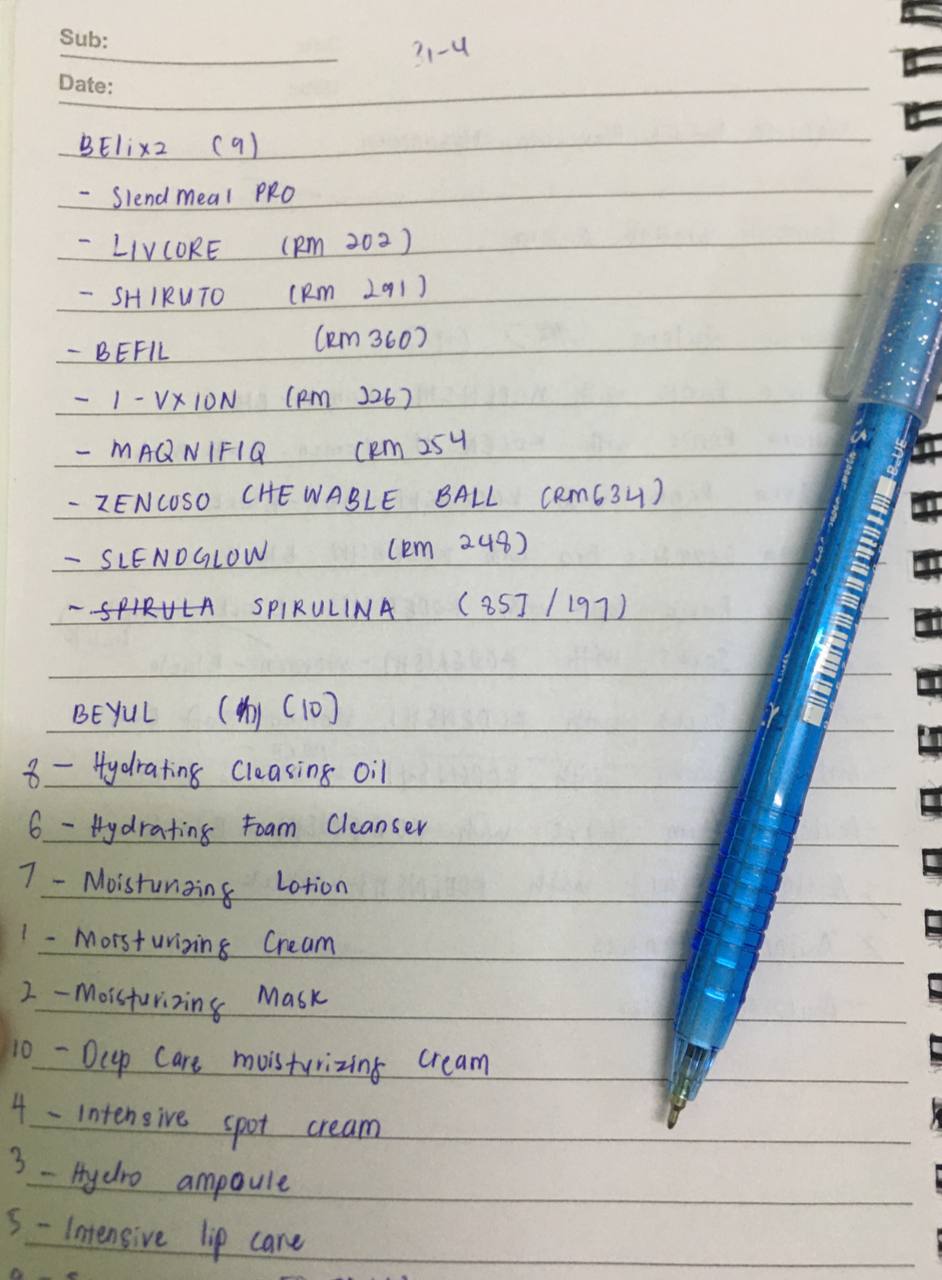 Sub:
31-4
Date:
BElixz (9)
- Slendmeal PRO
- LIVCORE (RM 202)
- SHIRUTO (RM 291)
- BEFIL (RM 360)
- I-VXION (RM 326)
- MAQNIFIQ (RM 254
- ZENCOSO CHEWABLE BALL (RM634)
- SLENDGLOW (RM 248)
- SPIRULA SPIRULINA (857/197)
BEYUL (10)
8 - Hydrating Cleasing Oil
6 - Hydrating Foam Cleanser
7 - Moisturizing Lotion
1 - Moisturizing Cream
2 - Moisturizing Mask
10 - Deep Care moisturizing cream
4 - Intensive spot cream
3 - Hydro ampoule
5 - Intensive lip care